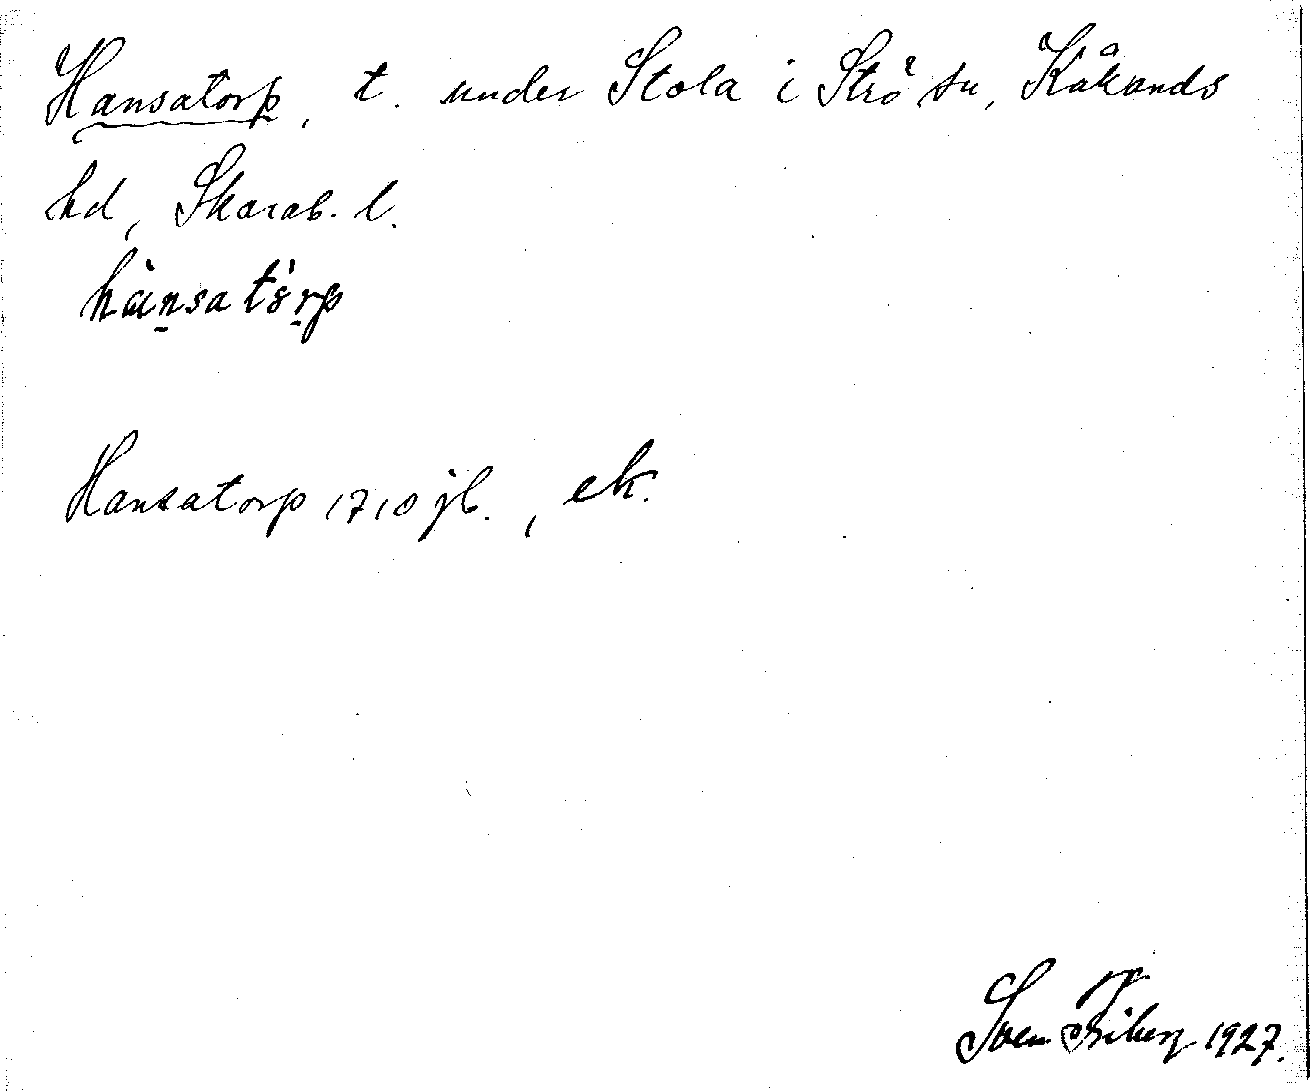 Hansatorp, t. under Stola i Strö sn, Kåkands
hd, Skarab. l.
hànsatórp
Hansatorp 1710 jb., ek.
Sven Friberg 1927.